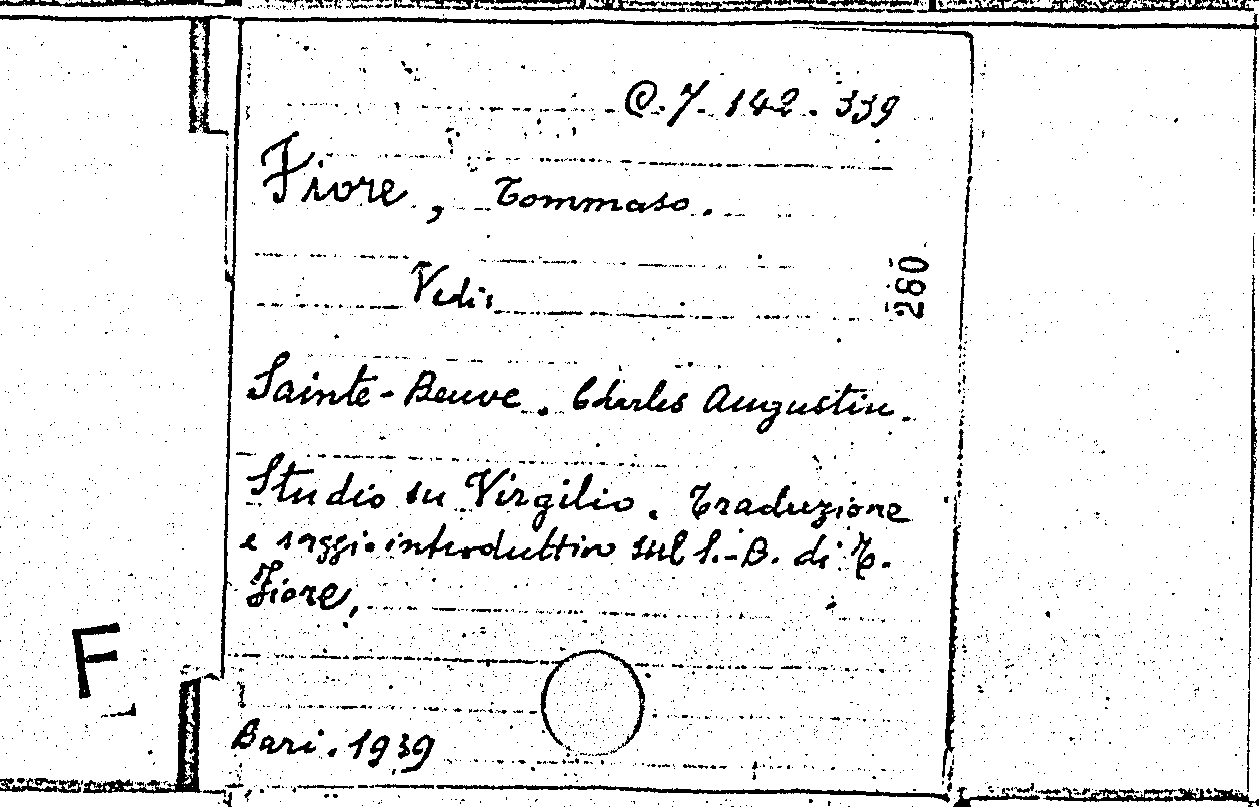 C.7.142.339
Fiore, Tommaso.
Vedi,
280
Sainte-Beuve. Charles Augustin.
Studio su Virgilio. Traduzione
e saggio introduttivo sul S.-B. di T.
Fiore,
F
Bari. 1939